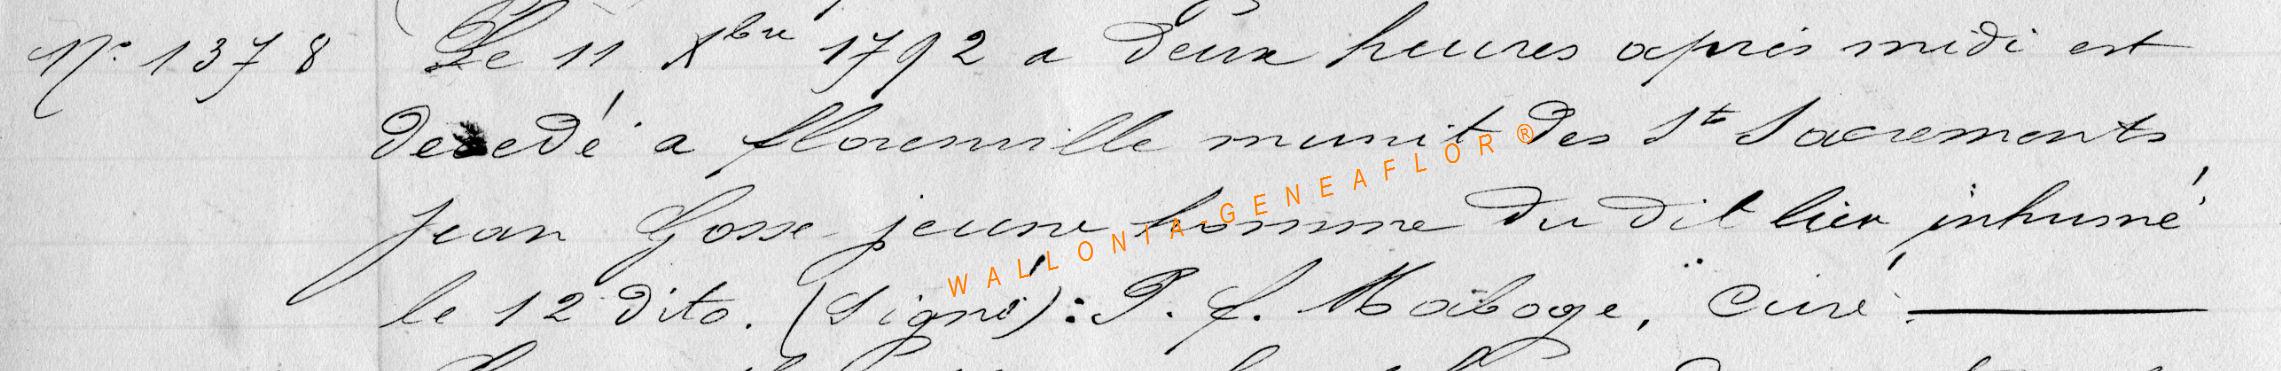 N° 1378 Le 11 Xbre 1792 a deux heures après midi est
decedé a florenville munit des St Sacrements
Jean Gosse jeune homme du dit lieu inhumé
le 12 dito. (Signé): P. f. Maïboge, Curé
WALLONIA-GENEAFLOR®